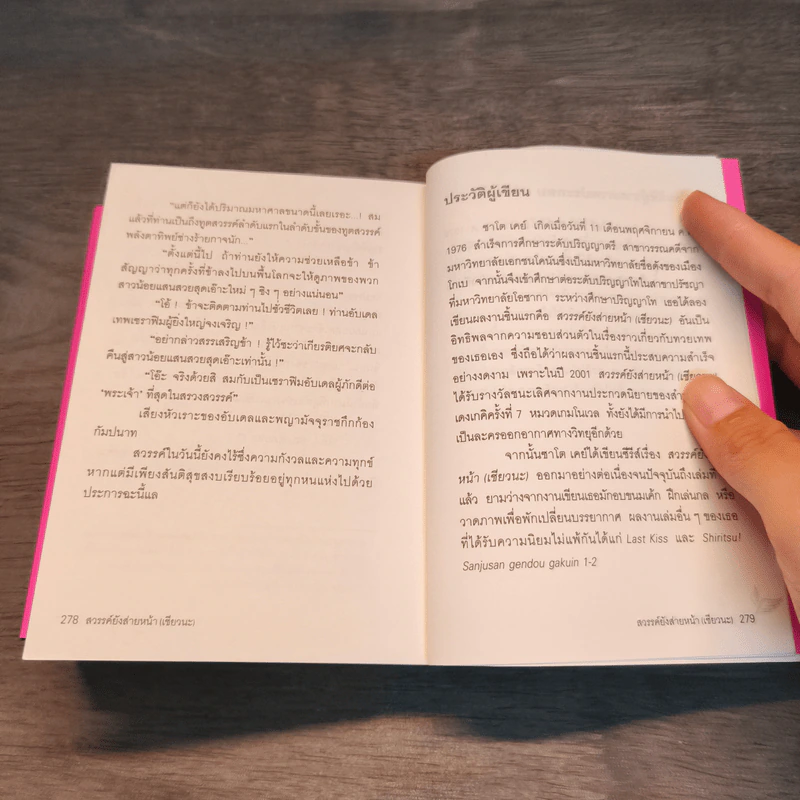 "แต่ก็ยังได้ปริมาณมหาศาลขนาดนี้เลยเรอะ...! สม
แล้วที่ท่านเป็นถึงทูตสวรรค์ลำดับแรกในลำดับขั้นของทูตสวรรค์
พลังตาทิพย์ช่างร้ายกาจนัก..."
"ตั้งแต่นี้ไป ถ้าท่านยังให้ความช่วยเหลือข้า ข้า
สัญญาว่าทุกครั้งที่ข้าลงไปบนพื้นโลกจะให้ดูภาพของพวก
สาวน้อยแสนสวยสุดเอ๊าะใหม่ ๆ ซิง ๆ อย่างแน่นอน"
"โอ้! ข้าจะติดตามท่านไปชั่วชีวิตเลย! ท่านอับเดล
เทพเซราฟิมผู้ยิ่งใหญ่จงเจริญ!"
"อย่ากล่าวสรรเสริญข้า! รู้ไว้ซะว่าเกียรติยศจะกลับ
คืนสู่สาวน้อยแสนสวยสุดเอ๊าะเท่านั้น!"
"โอ๊ะ จริงด้วยสิ สมกับเป็นเซราฟิมอับเดลผู้ภักดีต่อ
'พระเจ้า' ที่สุดในสรวงสวรรค์"
เสียงหัวเราะของอับเดลและพญามัจจุราชกึกก้อง
กัมปนาท
สวรรค์ในวันนี้ยังคงไร้ซึ่งความกังวลและความทุกข์
หากแต่มีเพียงสันติสุขสงบเรียบร้อยอยู่ทุกหนแห่งไปด้วย
ประการฉะนี้แล
278 สวรรค์ยังส่ายหน้า (เชียวนะ)
ประวัติผู้เขียน
ซาโต เคย์ เกิดเมื่อวันที่ 11 เดือนพฤศจิกายน
1976 สำเร็จการศึกษาระดับปริญญาตรี สาขาวรรณคดีจาก
มหาวิทยาลัยเอกชนโคนันซึ่งเป็นมหาวิทยาลัยชื่อดังของเมือง
โกเบ จากนั้นจึงเข้าศึกษาต่อระดับปริญญาโทในสาขาปรัชญา
ที่มหาวิทยาลัยโอซากา ระหว่างศึกษาปริญญาโท เธอได้ลอง
เขียนผลงานชิ้นแรกคือ สวรรค์ยังส่ายหน้า (เชียวนะ) อันเป็น
อิทธิพลจากความชอบส่วนตัวในเรื่องราวเกี่ยวกับทวยเทพ
ของเธอเอง ซึ่งถือได้ว่าผลงานชิ้นแรกนี้ประสบความสำเร็จ
อย่างงดงาม เพราะในปี 2001 สวรรค์ยังส่ายหน้า
ได้รับรางวัลชนะเลิศจากงานประกวดนิยายของสำ
เดงเกคิครั้งที่ 7 หมวดเกมโนเวล ทั้งยังได้มีการนำไป
เป็นละครออกอากาศทางวิทยุอีกด้วย
จากนั้นซาโต เคย์ได้เขียนซีรีส์เรื่อง สวรรค์ยัง
หน้า (เชียวนะ) ออกมาอย่างต่อเนื่องจนปัจจุบันถึงเล่มที่
แล้ว ยามว่างจากงานเขียนเธอมักอบขนมเค้ก ฝึกเล่นกล หรือ
วาดภาพเพื่อพักเปลี่ยนบรรยากาศ ผลงานเล่มอื่น ๆ ของเธอ
ที่ได้รับความนิยมไม่แพ้กันได้แก่ Last Kiss และ Shiritsu!
Sanjusan gendou gakuin 1-2
สวรรค์ยังส่ายหน้า (เชียวนะ) 279